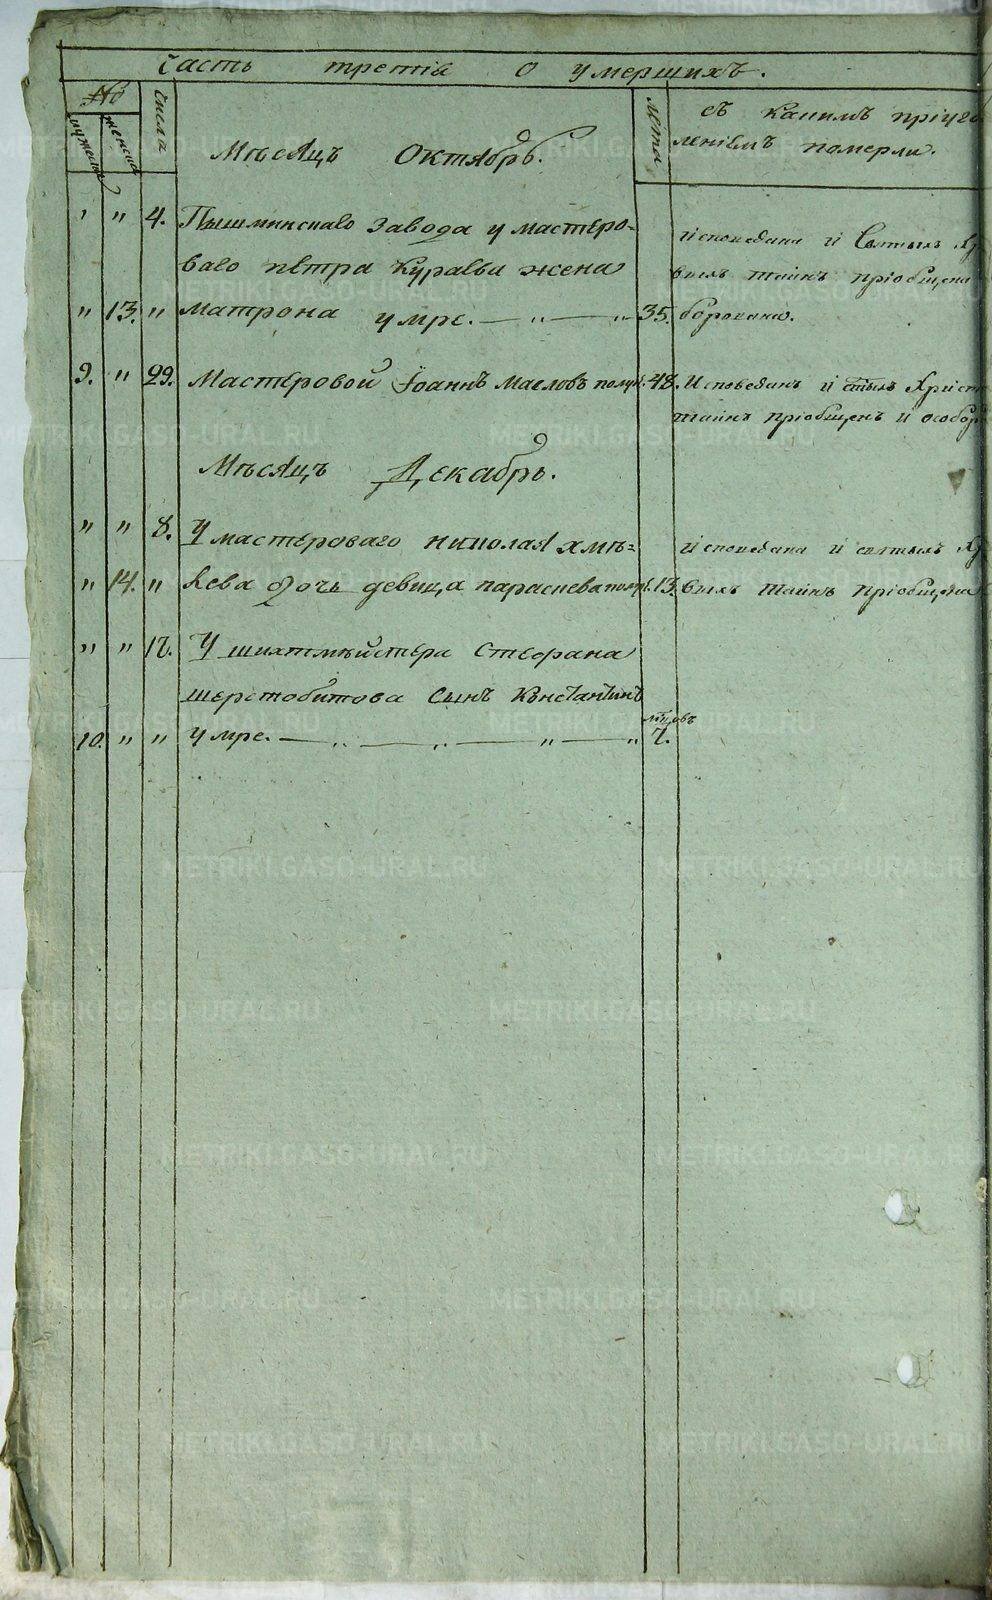 Часть третія о умершихъ.
№
мужеска
женска
числа
Мѣсяцъ Октябрь.
лѣты
съ какимъ пріуго
леніемъ померли.
" " 4. Пышминскаго завода у мастеро-
ваго Петра Кураева жена
исповѣдана и Святыхъ Хр
" 13. " Матрона умре. — " — " 35.
выхъ тайнъ пріобщена
борована.
9. " 29. Мастеровой Іоаннъ Масловъ 48. Исповѣданъ и стыхъ Христо
тайнъ пріобщенъ и особор
Мѣсяцъ Декабрь.
" " 8. У мастероваго Николая Хмѣ=
исповѣдана и святыхъ Хр
" 14. " лева дочь девица Параскева 13. выхъ тайнъ пріобщена
" " 12. У шихтмейстера Стефана
Шерстобитова сынъ Константинъ
10. " " умре. — " — " — " — " мцовъ 7.
METRIKI.GASO-URAL.RU